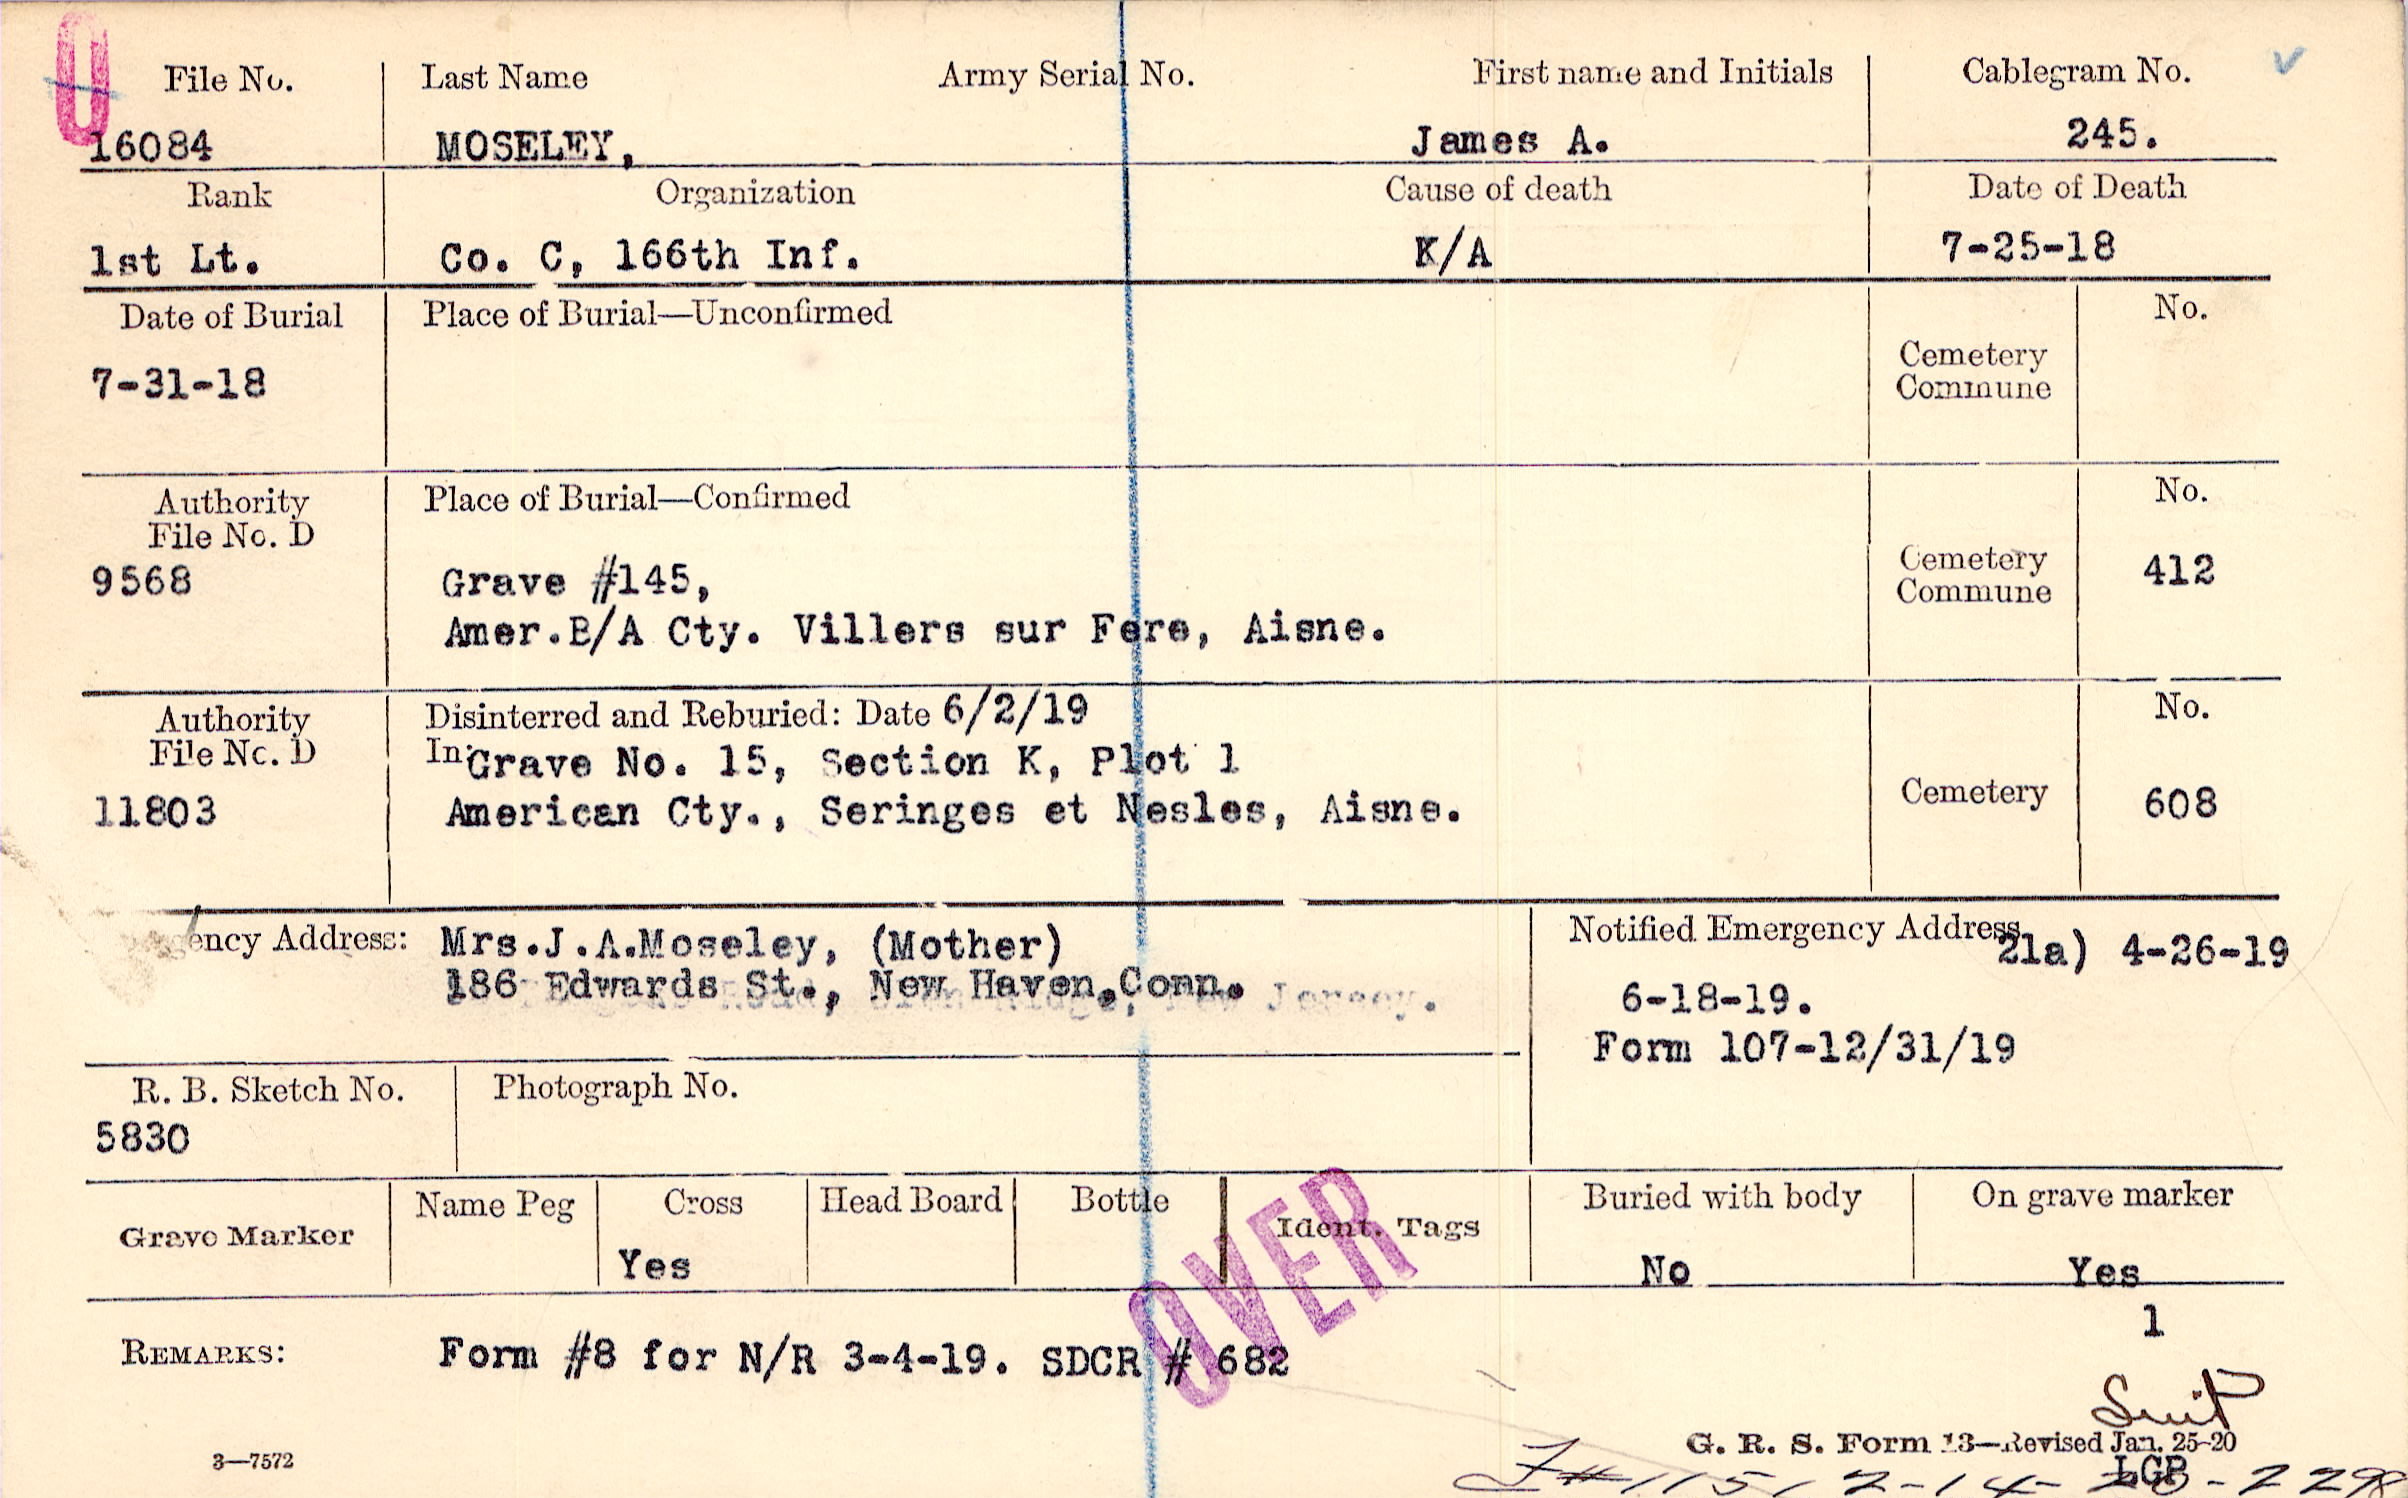 File No. Last Name Army Serial No. First name and Initials Cablegram No.
16084 MOSELEY, James A. 245.
Rank Organization Cause of death Date of Death
1st Lt. Co. C, 166th Inf. K/A 7-25-18
Date of Burial Place of Burial—Unconfirmed No.
7-31-18
Cemetery
Commune
Authority Place of Burial—Confirmed No.
File No. D
9568 Grave #145, Cemetery 412
Commune
Amer.B/A Cty. Villers sur Fere, Aisne.
Authority Disinterred and Reburied: Date 6/2/19 No.
File No. D In Grave No. 15, Section K, Plot 1
11803 American Cty., Seringes et Nesles, Aisne. Cemetery 608
gency Address: Mrs.J.A.Moseley, (Mother) Notified Emergency Address 21a) 4-26-19
186 Edwards St., New Haven,Conn. 6-18-19.
Jersey.
Form 107-12/31/19
R. B. Sketch No. Photograph No.
5830
Grave Marker Name Peg Cross Head Board Bottle Ident. Tags Buried with body On grave marker
Yes No Yes
1
OVER
REMARKS: Form #8 for N/R 3-4-19. SDCR # 682
G. R. S. Form 13—Revised Jan. 25-20
3—7572
LGP